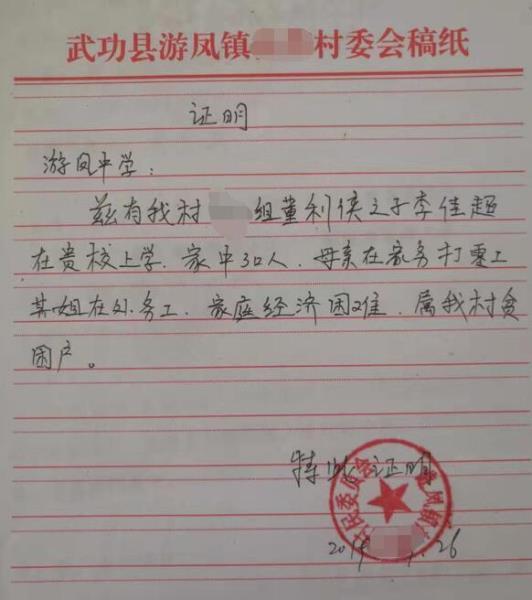 武功县游凤镇 村委会稿纸
证明
游凤中学：
兹有我村 组董利侠之子李佳超
在贵校上学.家中3口人.母亲在家务打零工
其姐在外务工.家庭经济困难.属我村贫
困户。
特此证明
村民委员会
游凤镇
26